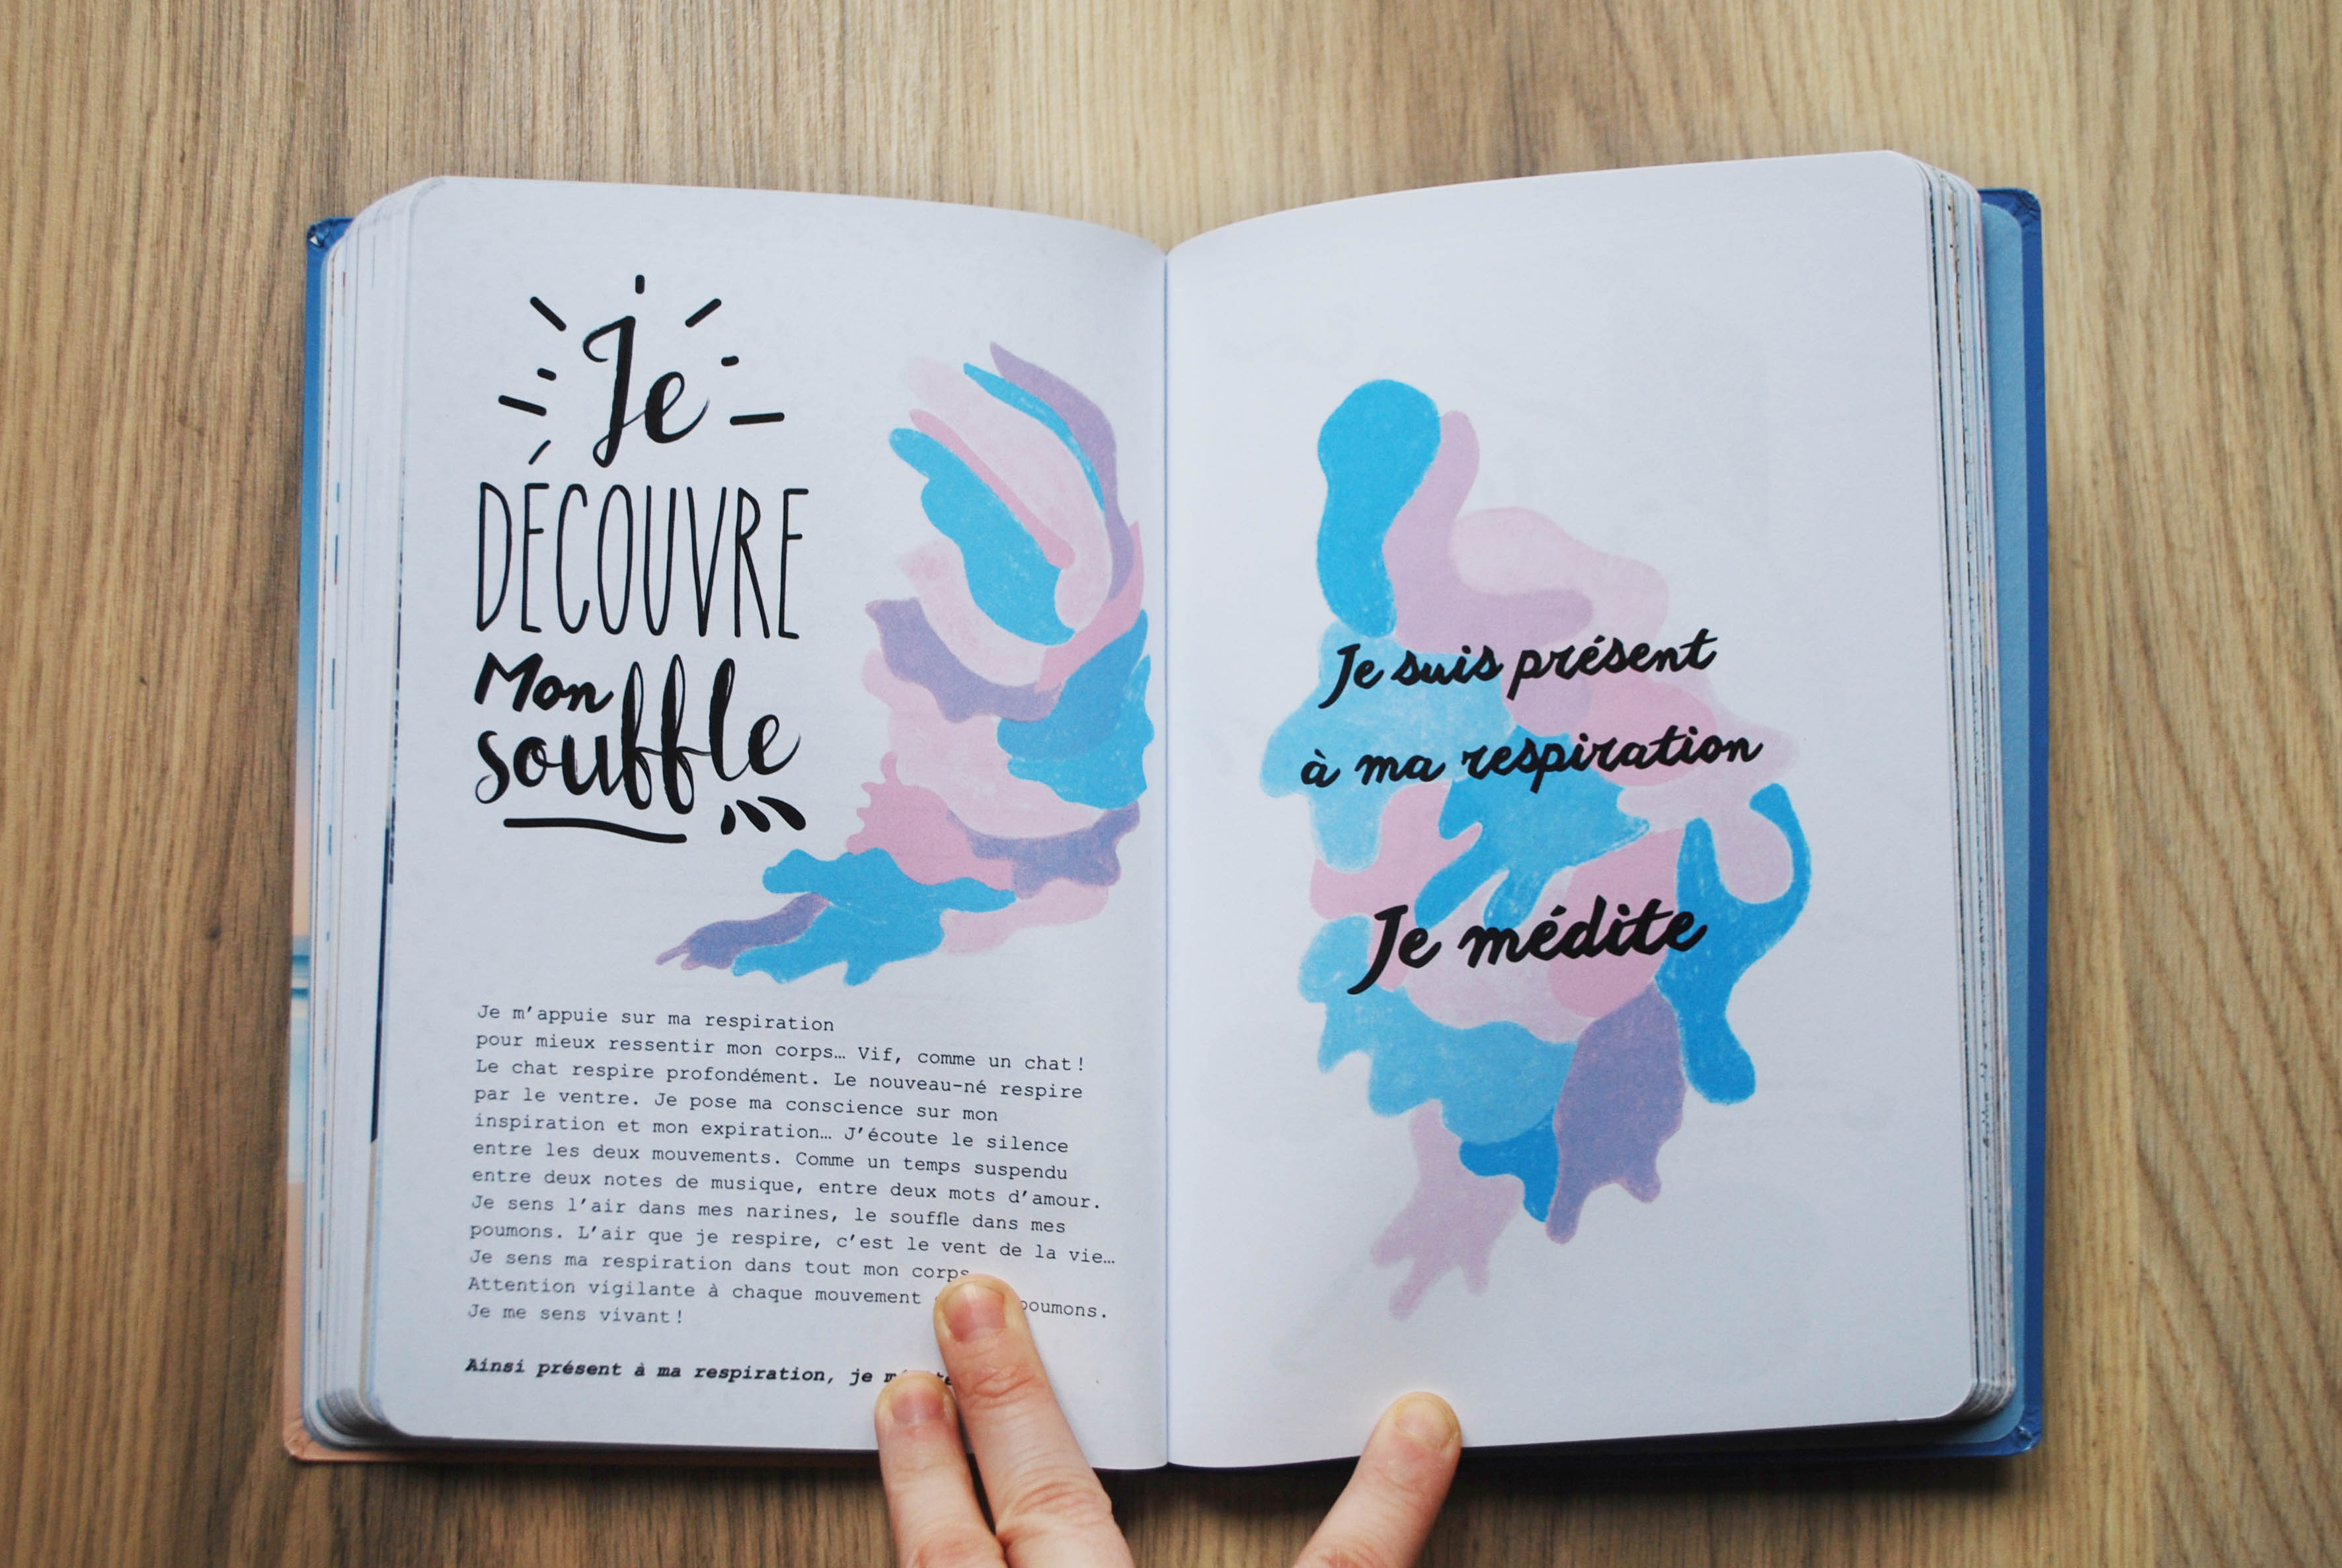 Je
DÉCOUVRE
Mon
souffle
Je m'appuie sur ma respiration
pour mieux ressentir mon corps… Vif, comme un chat !
Le chat respire profondément. Le nouveau-né respire
par le ventre. Je pose ma conscience sur mon
inspiration et mon expiration… J'écoute le silence
entre les deux mouvements. Comme un temps suspendu
entre deux notes de musique, entre deux mots d'amour.
Je sens l'air dans mes narines, le souffle dans mes
poumons. L'air que je respire, c'est le vent de la vie…
Je sens ma respiration dans tout mon corps
Attention vigilante à chaque mouvement poumons.
Je me sens vivant !
Ainsi présent à ma respiration, je
Je suis présent
à ma respiration
Je médite